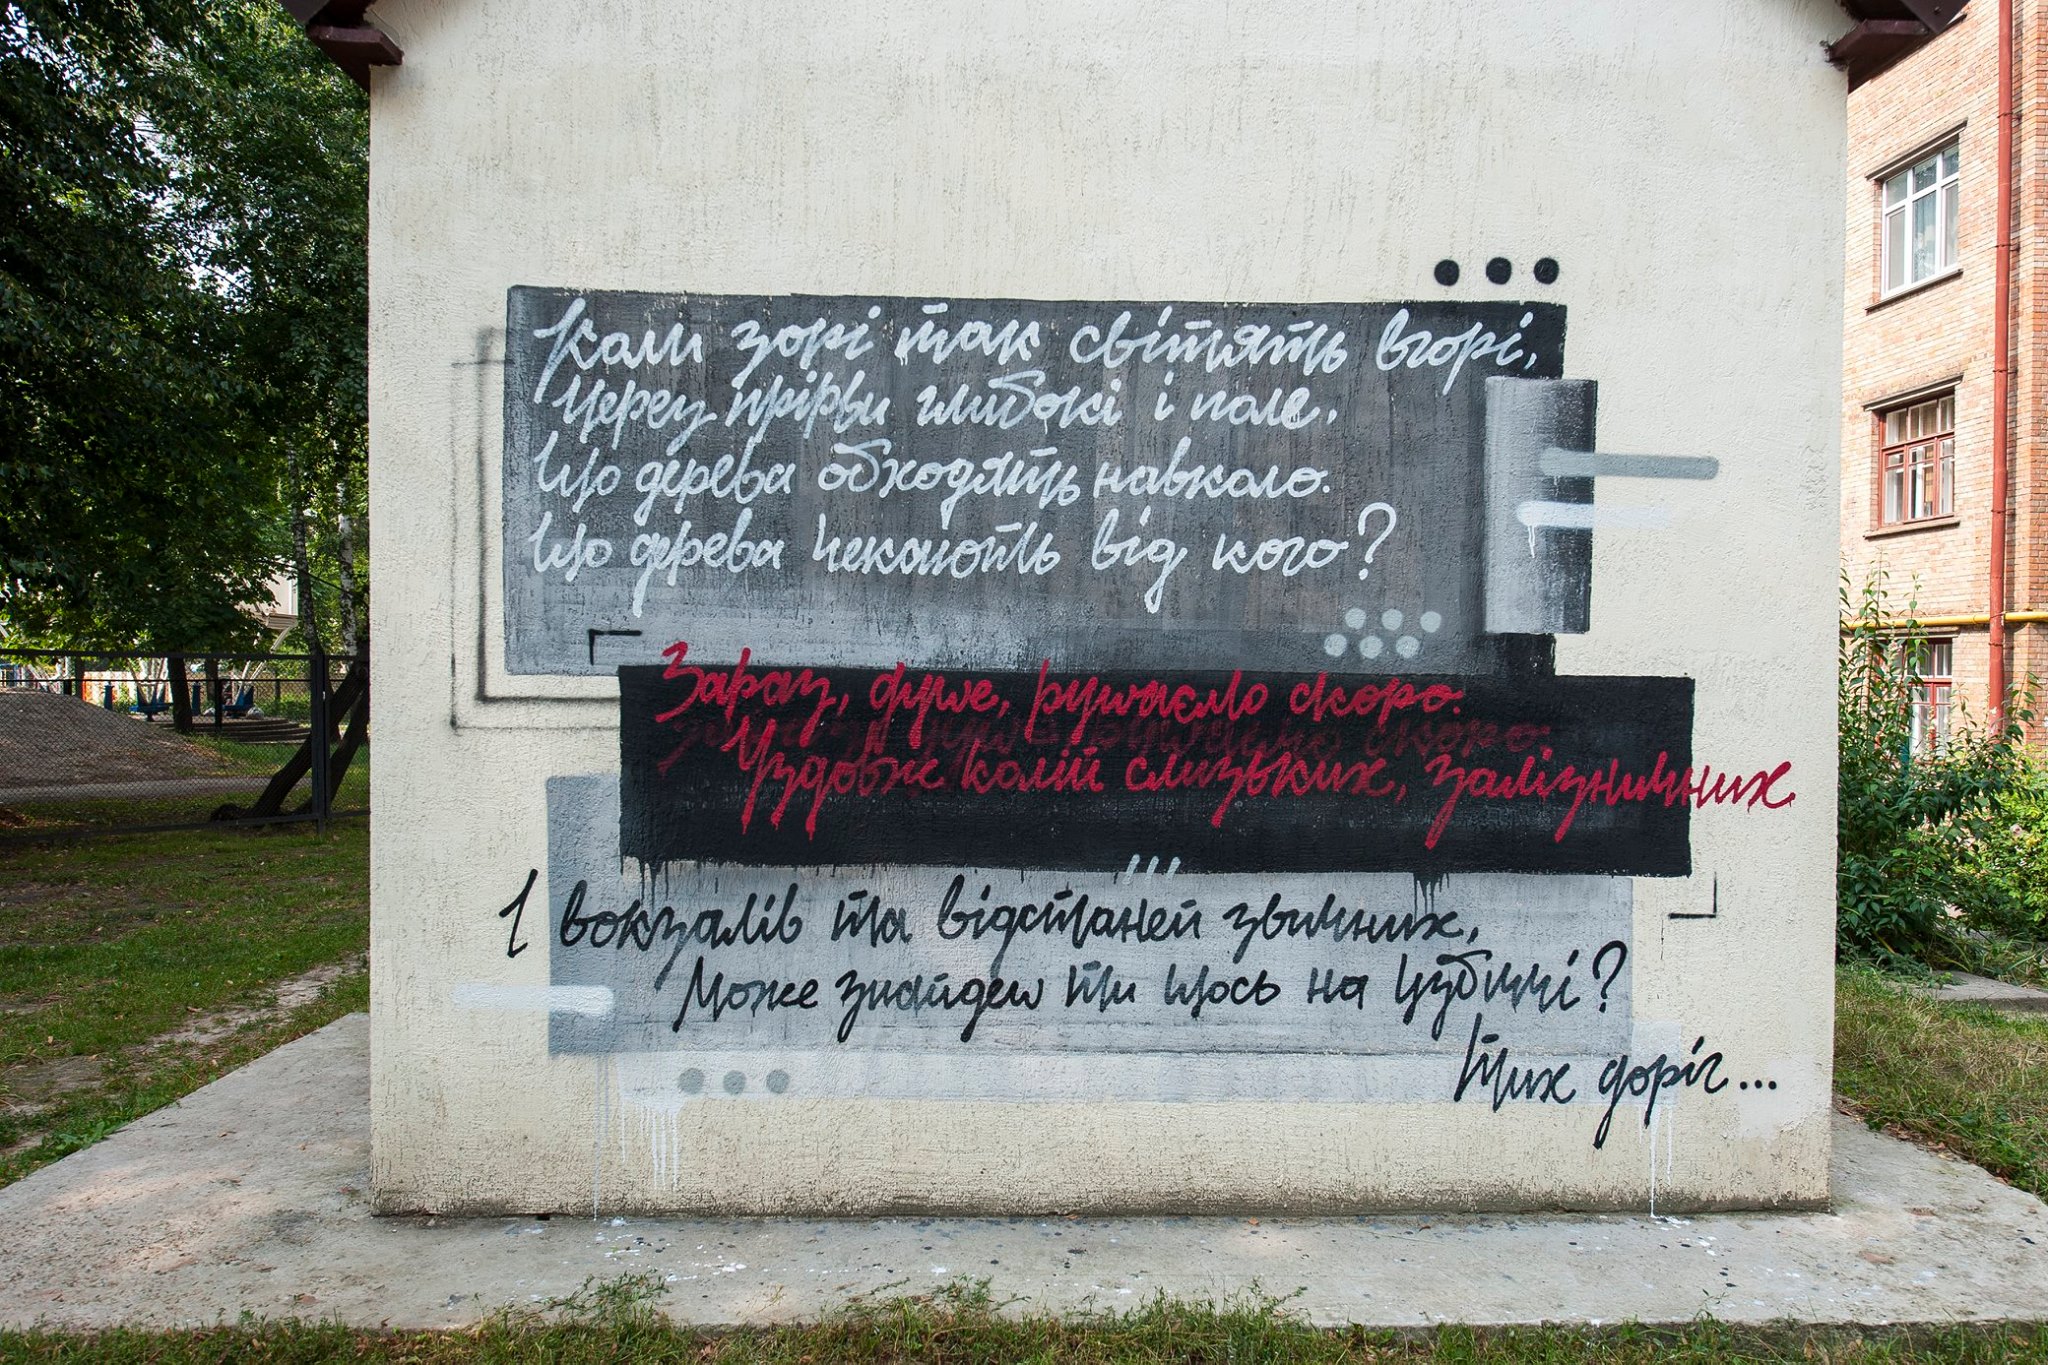 Коли зорі так світять вгорі,
Через прірви глибокі і поле.
Що дерева обходять навколо.
Що дерева чекають від кого?
Зараз, душе, рушаємо скоро.
Уздовж колій слизьких, залізничних
І вокзалів та відстаней звичних,
Може знайдеш ти щось на узбіччі?
Тих доріг...